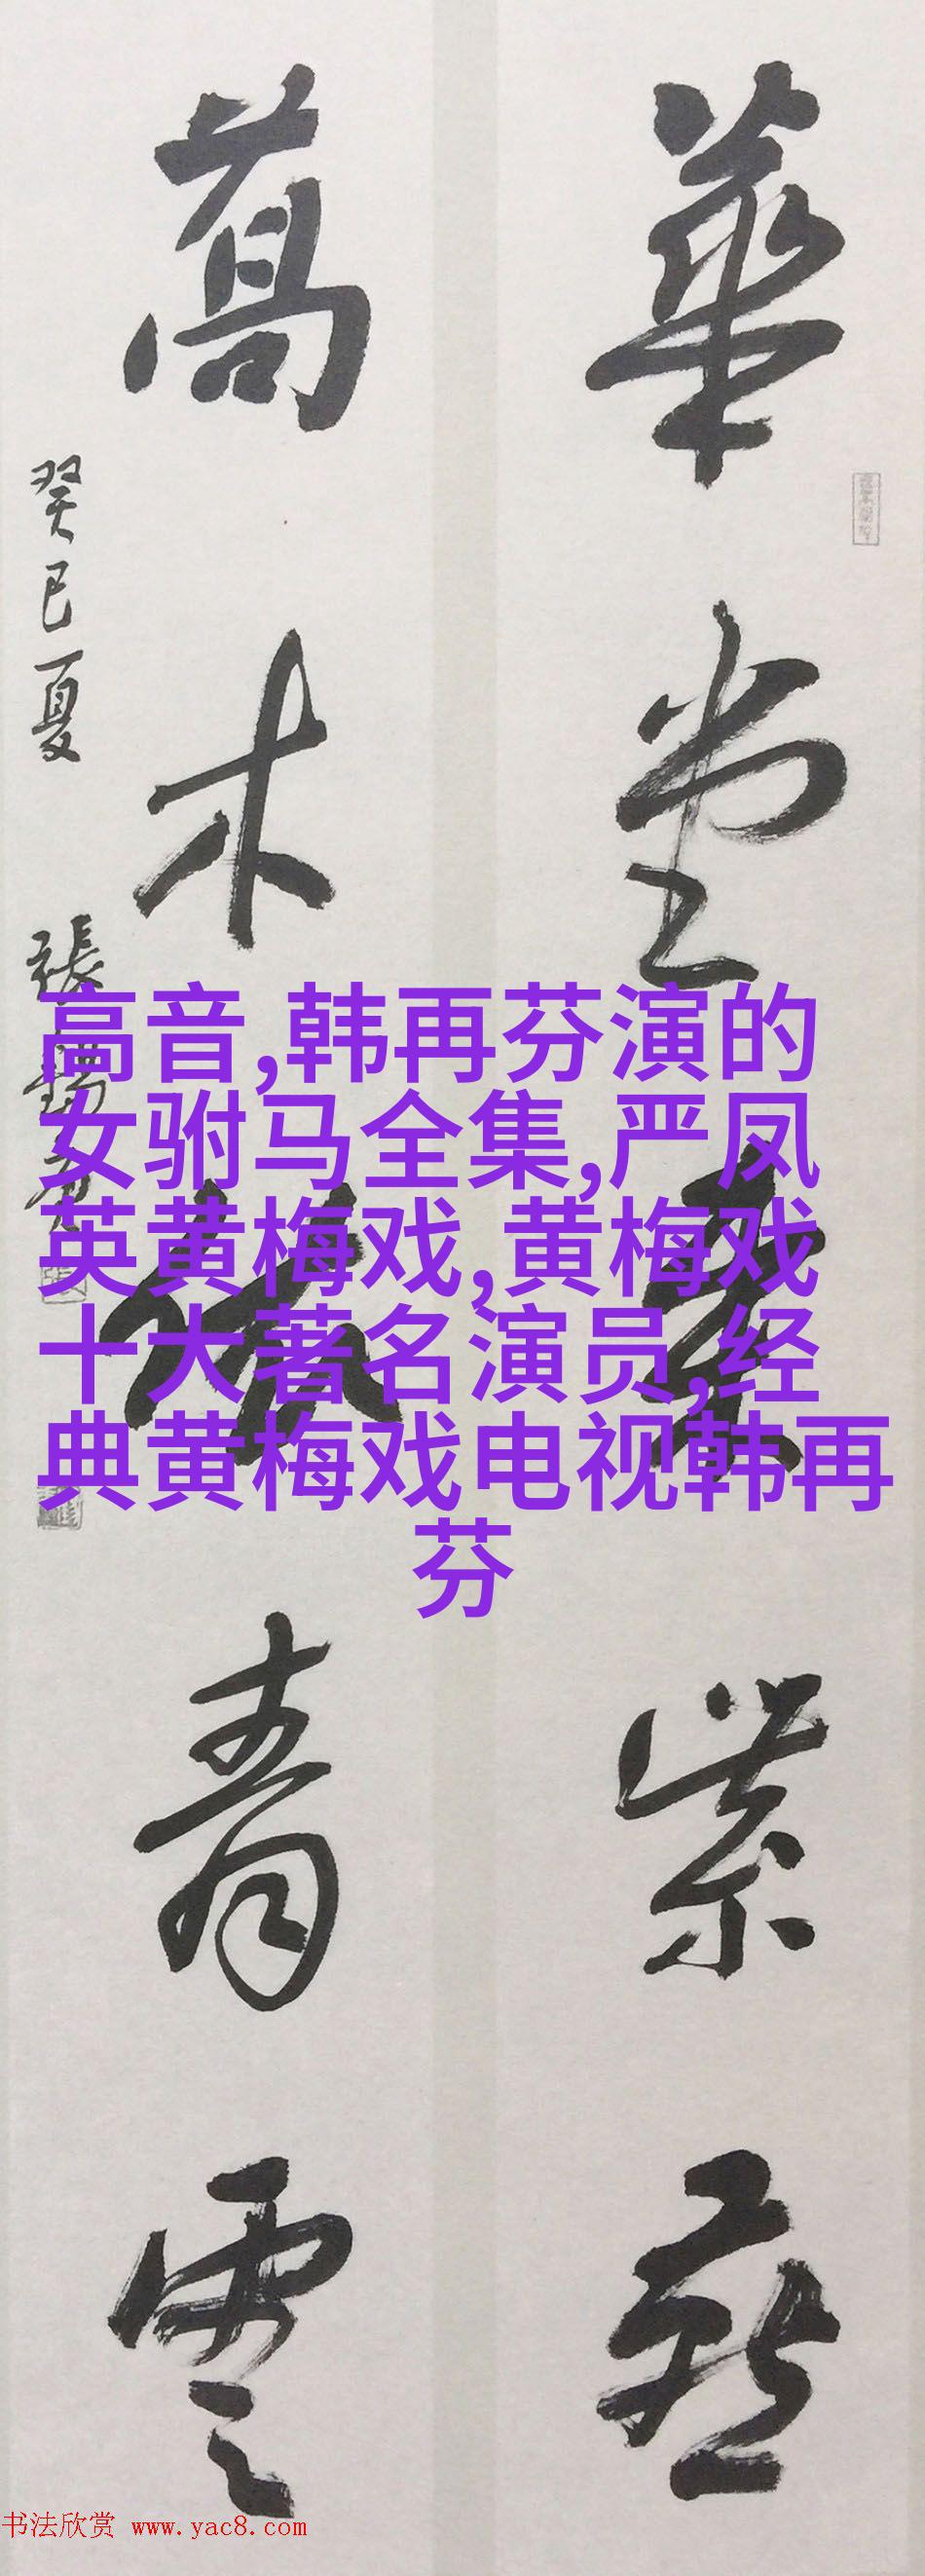 華堂紫
萬木青雲
癸巳夏 張
高音,韩再芬演的
女驸马全集,严凤
英黄梅戏,黄梅戏
十大著名演员,经
典黄梅戏电视韩再
芬
书法欣赏 www.yac8.com